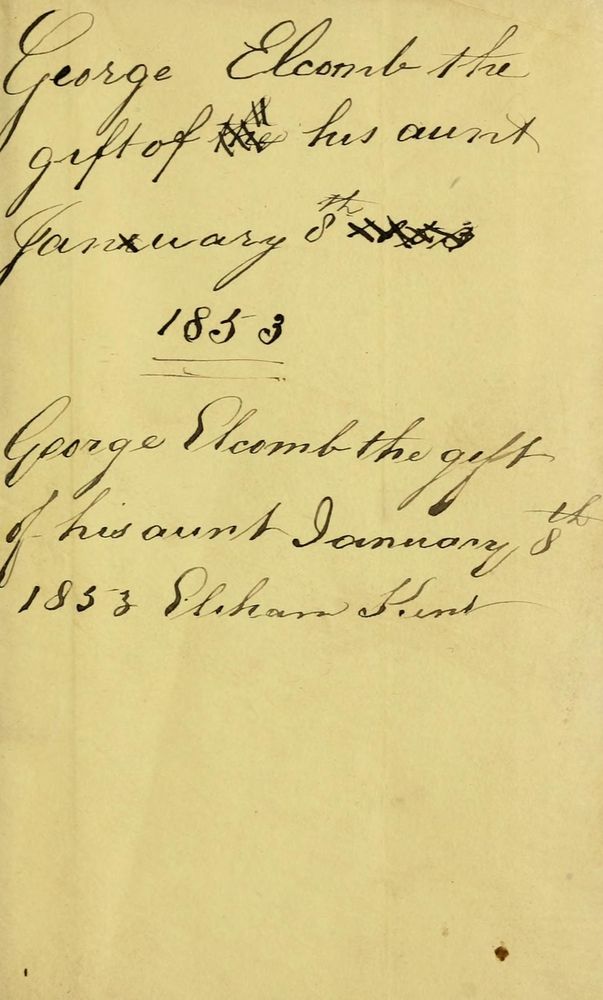 George Elcomb the
gift of the his aunt
January 8th
1853
George Elcomb the gift
of his aunt January 8th
1853 Elcham Kent